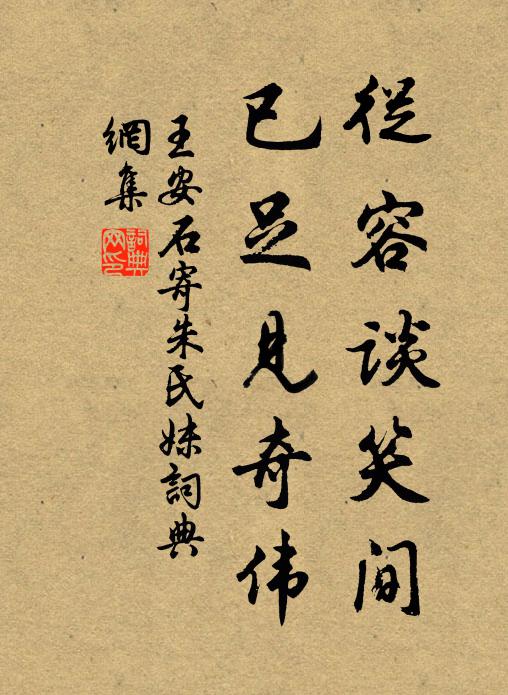 從容談笑间
已足見奇伟
王安石寄朱氏妹詞典
網集
詞典
网印